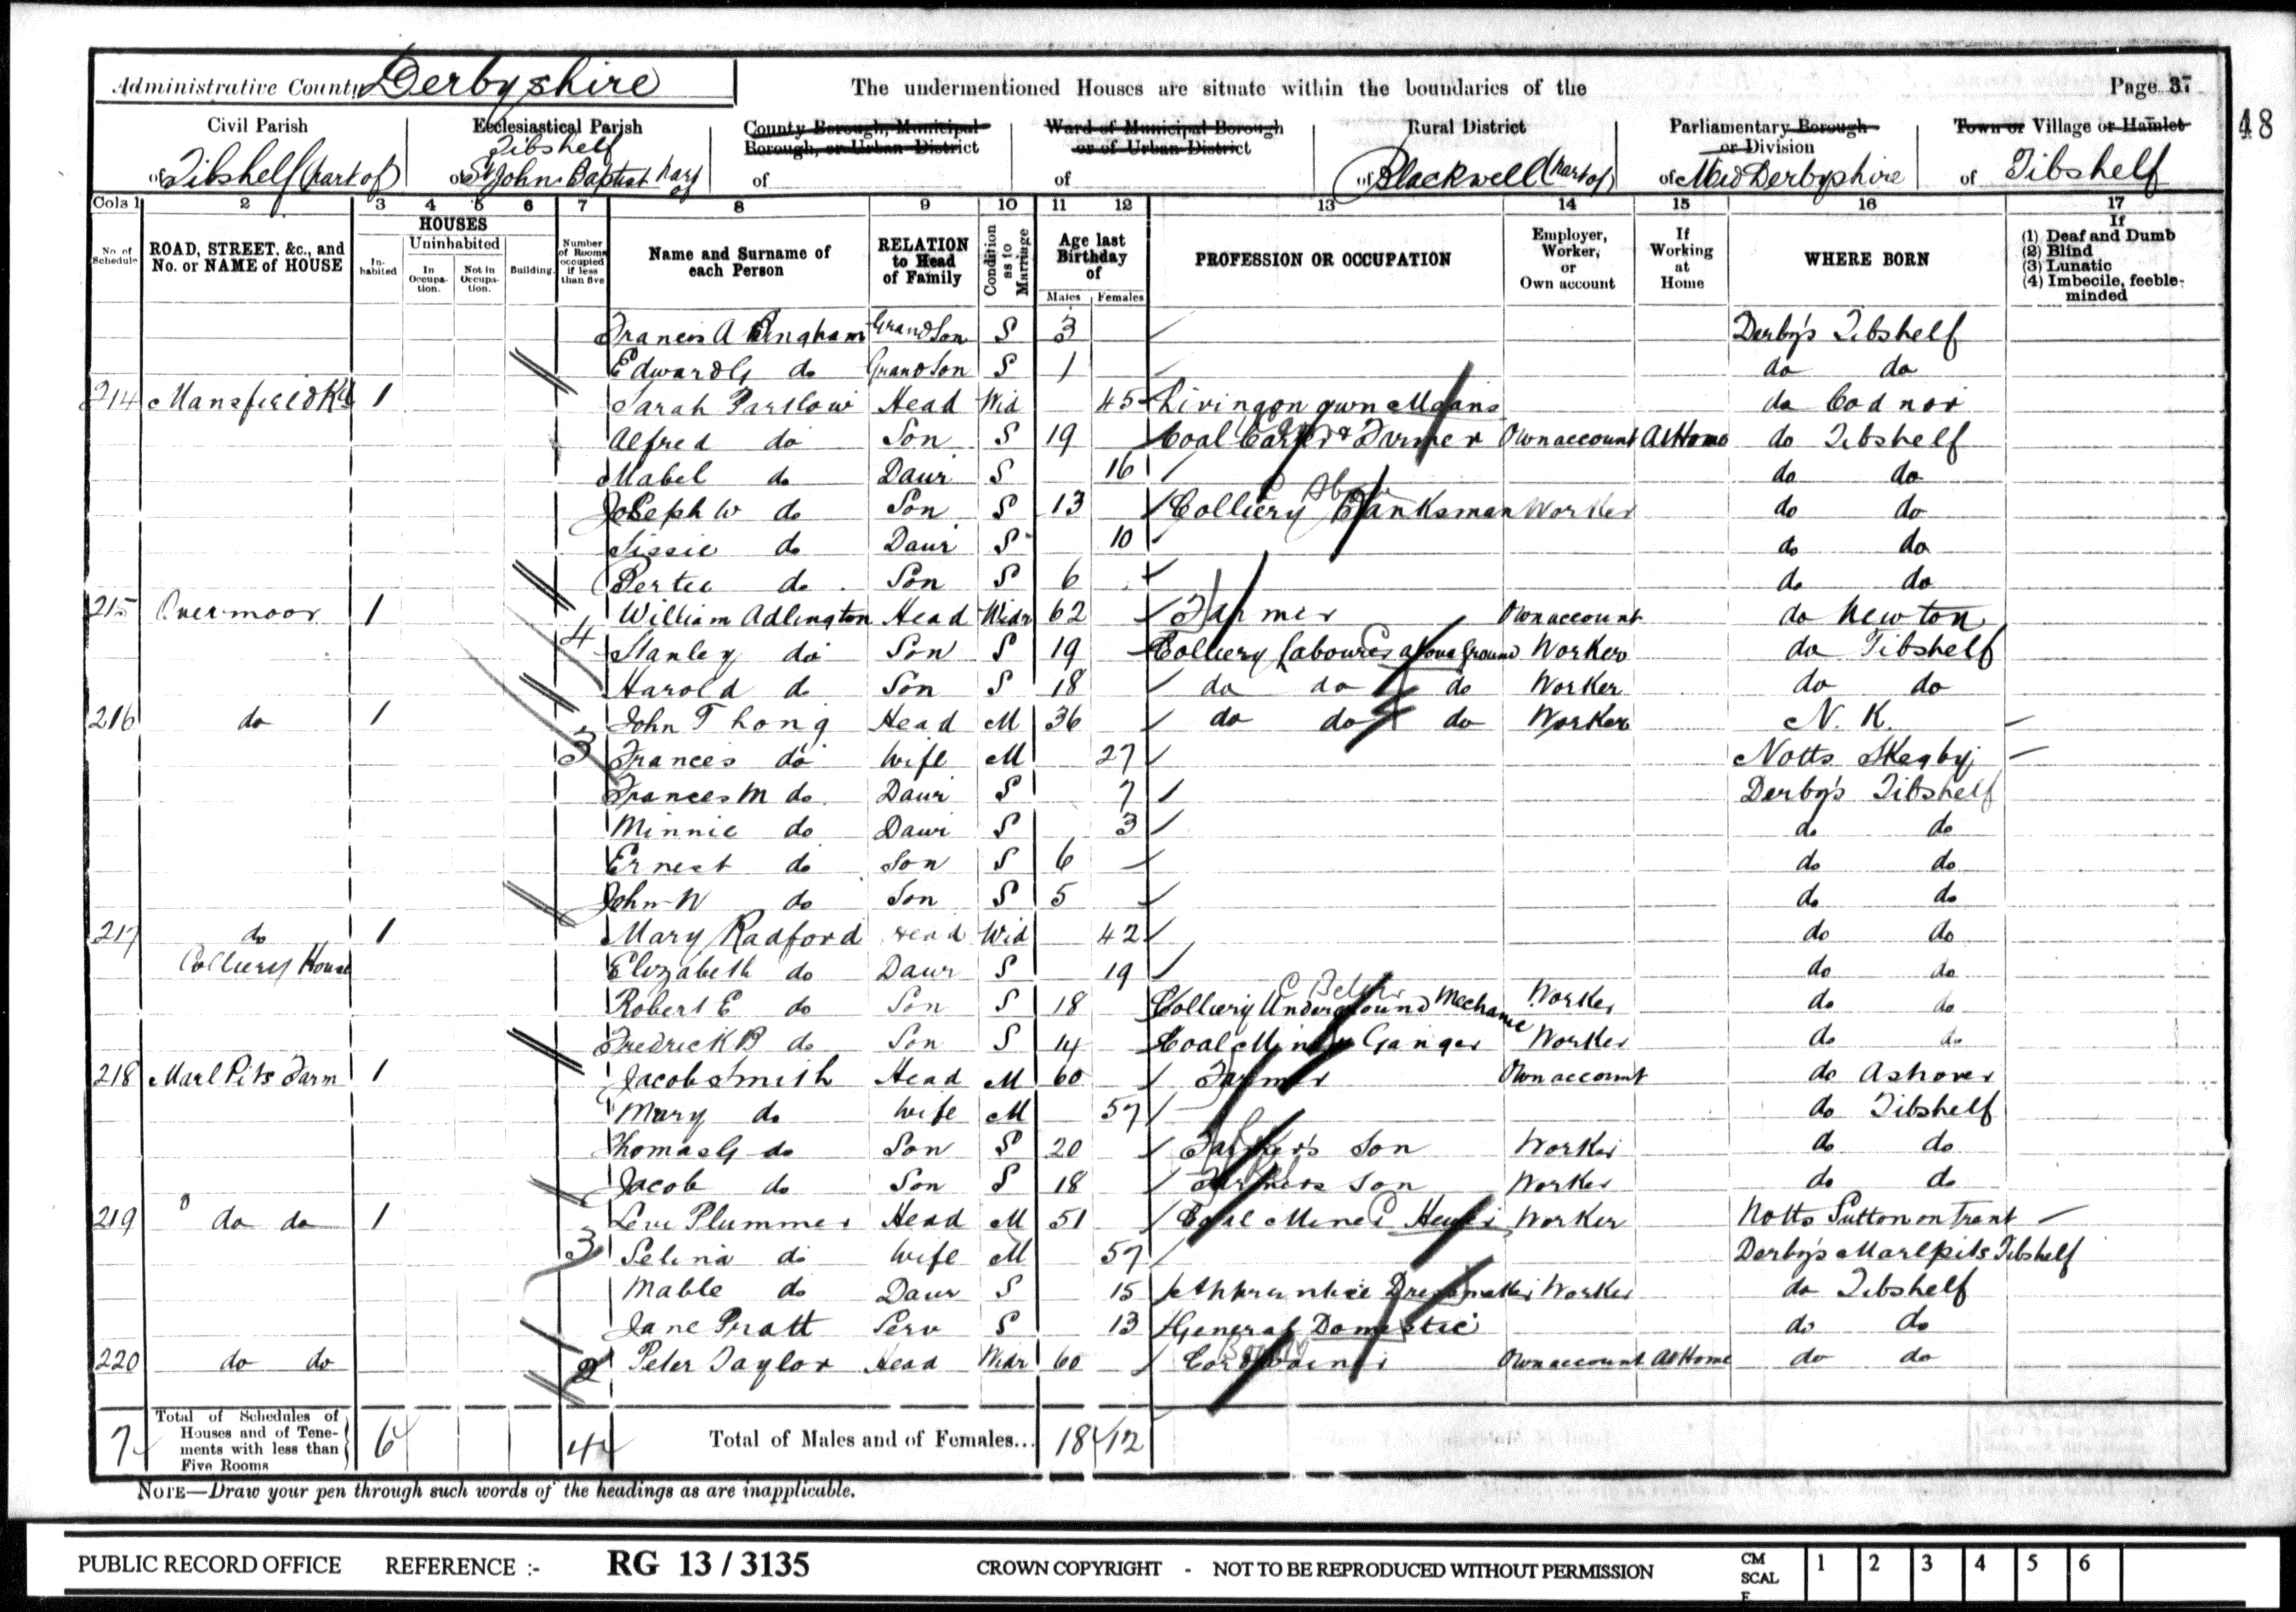 Administrative County Derbyshire The undermentioned Houses are situate within the boundaries of the Page 37
48
Civil Parish Ecclesiastical Parish County Borough, Municipal Borough, or Urban District Ward of Municipal Borough or of Urban District Rural District Parliamentary Borough or Division Town or Village or Hamlet
of Tibshelf (part of) of Tibshelf St John Baptist part of of of of Blackwell (part of) of Mid Derbyshire of Tibshelf
Cols 1 2 3 4 5 6 7 8 9 10 11 12 13 14 15 16 17
No. of Schedule ROAD, STREET, &c., and No. or NAME of HOUSE HOUSES Inhabited Uninhabited In Occupation. Not in Occupation. Building. Number of Rooms occupied if less than five Name and Surname of each Person RELATION to Head of Family Condition as to Marriage Age last Birthday of Males Females PROFESSION OR OCCUPATION Employer, Worker, or Own account If Working at Home WHERE BORN If (1) Deaf and Dumb (2) Blind (3) Lunatic (4) Imbecile, feeble-minded
Francis A Bingham Grandson S 3 Derby's Tibshelf
Edward G do Grandson S 1 do do
214 Mansfield Rd 1 Sarah Parslow Head Wid 45 Living on own Means do Codnor
Alfred do Son S 19 Coal Carter & Farmer Own account At Home do Tibshelf
Mabel do Daur S 16 do do
Joseph W do Son S 13 Colliery Banksman Worker do do
Sissie do Daur S 10 do do
Bertie do Son S 6 do do
215 Overmoor 1 4 William Adlington Head Widr 62 Farmer Own account do Newton
Stanley do Son S 19 Colliery Labourer above Ground Worker do Tibshelf
Harold do Son S 18 do do do Worker do do
216 do 1 3 John Thong Head M 36 do do do Worker N. K.
Frances do Wife M 27 Notts Skegby
Frances M do Daur S 7 Derby's Tibshelf
Minnie do Daur S 3 do do
Ernest do Son S 6 do do
John W do Son S 5 do do
217 do 1 Mary Radford Head Wid 42 do do
Colliery House Elizabeth do Daur S 19 do do
Robert E do Son S 18 Colliery Underground Mechanic Worker do do
Fredrick B do Son S 14 Coal Mine Ganger Worker do do
218 Marl Pits Farm 1 Jacob Smith Head M 60 Farmer Own account do Ashover
Mary do Wife M 57 do Tibshelf
Thomas G do Son S 20 Farmer's Son Worker do do
Jacob do Son S 18 Farmers Son Worker do do
219 do do 1 3 Levi Plummer Head M 51 Coal Miner Hewer Worker Notts Sutton on Trent
Selina do Wife M 57 Derby's Marlpits Tibshelf
Mable do Daur S 15 Apprentice Dressmaker Worker do Tibshelf
Jane Pratt Serv S 13 General Domestic do do
220 do do 2 Peter Taylor Head Widr 60 Cordwainer Own account At Home do do
7 Total of Schedules of Houses and of Tenements with less than Five Rooms 6 4 Total of Males and of Females... 18 12
NOTE—Draw your pen through such words of the headings as are inapplicable.
PUBLIC RECORD OFFICE REFERENCE :- RG 13 / 3135 CROWN COPYRIGHT - NOT TO BE REPRODUCED WITHOUT PERMISSION CM SCALE 1 2 3 4 5 6